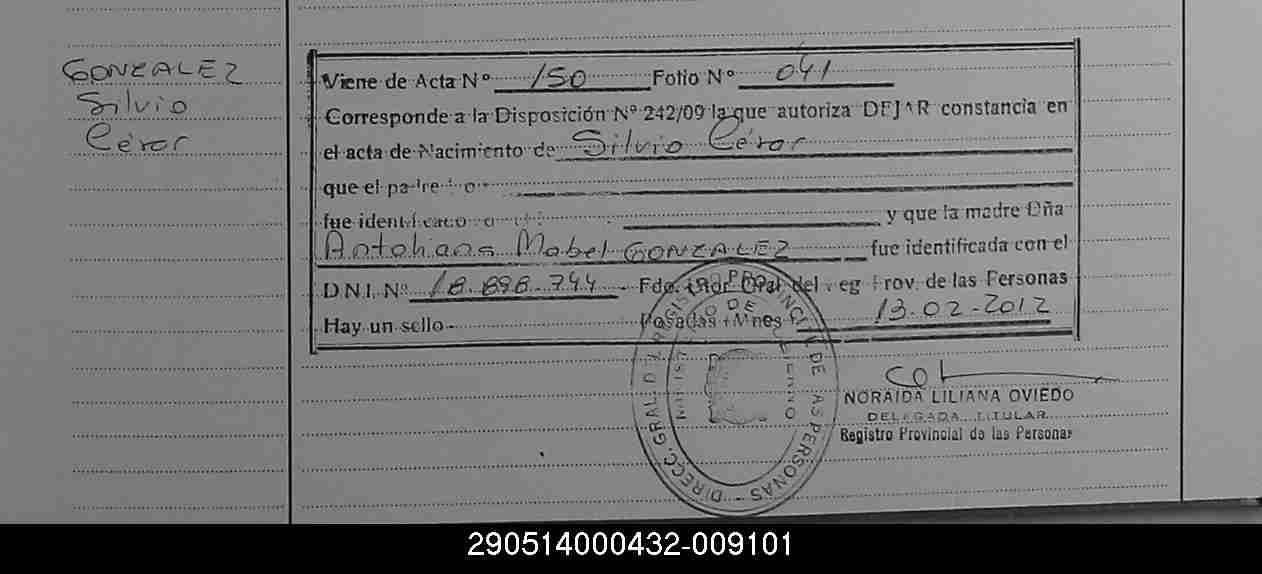 GONZALEZ
Silvio
César
Viene de Acta Nº 150 Folio Nº 041
Corresponde a la Disposición Nº 242/09 la que autoriza DEJAR constancia en
el acta de Nacimiento de Silvio César
que el padre
fue identificado
y que la madre Dña
Antoniaos Mabel GONZALEZ fue identificada con el
D.N.I. Nº 18.898.744 - Fdo. Gral del Reg Prov. de las Personas
Hay un sello - Posadas Mnes 13-02-2012
NORAIDA LILIANA OVIEDO
DELEGADA TITULAR
Registro Provincial de las Personas
DIRECC. GRAL. DEL REGISTRO PROVINCIAL DE LAS PERSONAS
290514000432-009101